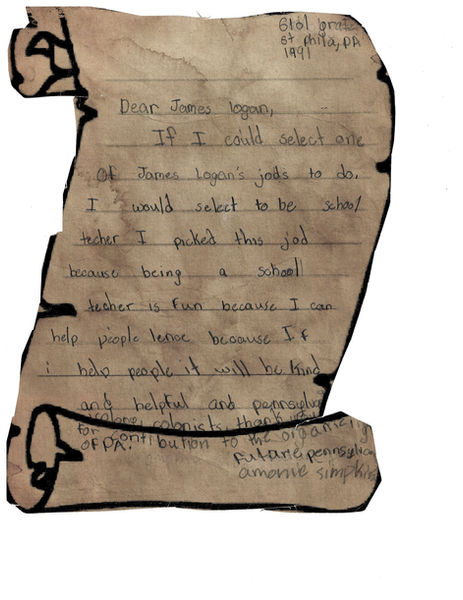 6101
st Phila, PA
1991
Dear James logan,
If I could select one
Of James Logan's jods to do.
I would select to be school
techer I picked this jod
because being a school
techer is fun because I can
help people lenoe because If
i help people it will be kind
and helpful and pennsylvan
colonists, thank you
for contribution to the
OF PA.
Future pennsylvan
amonie simpkins